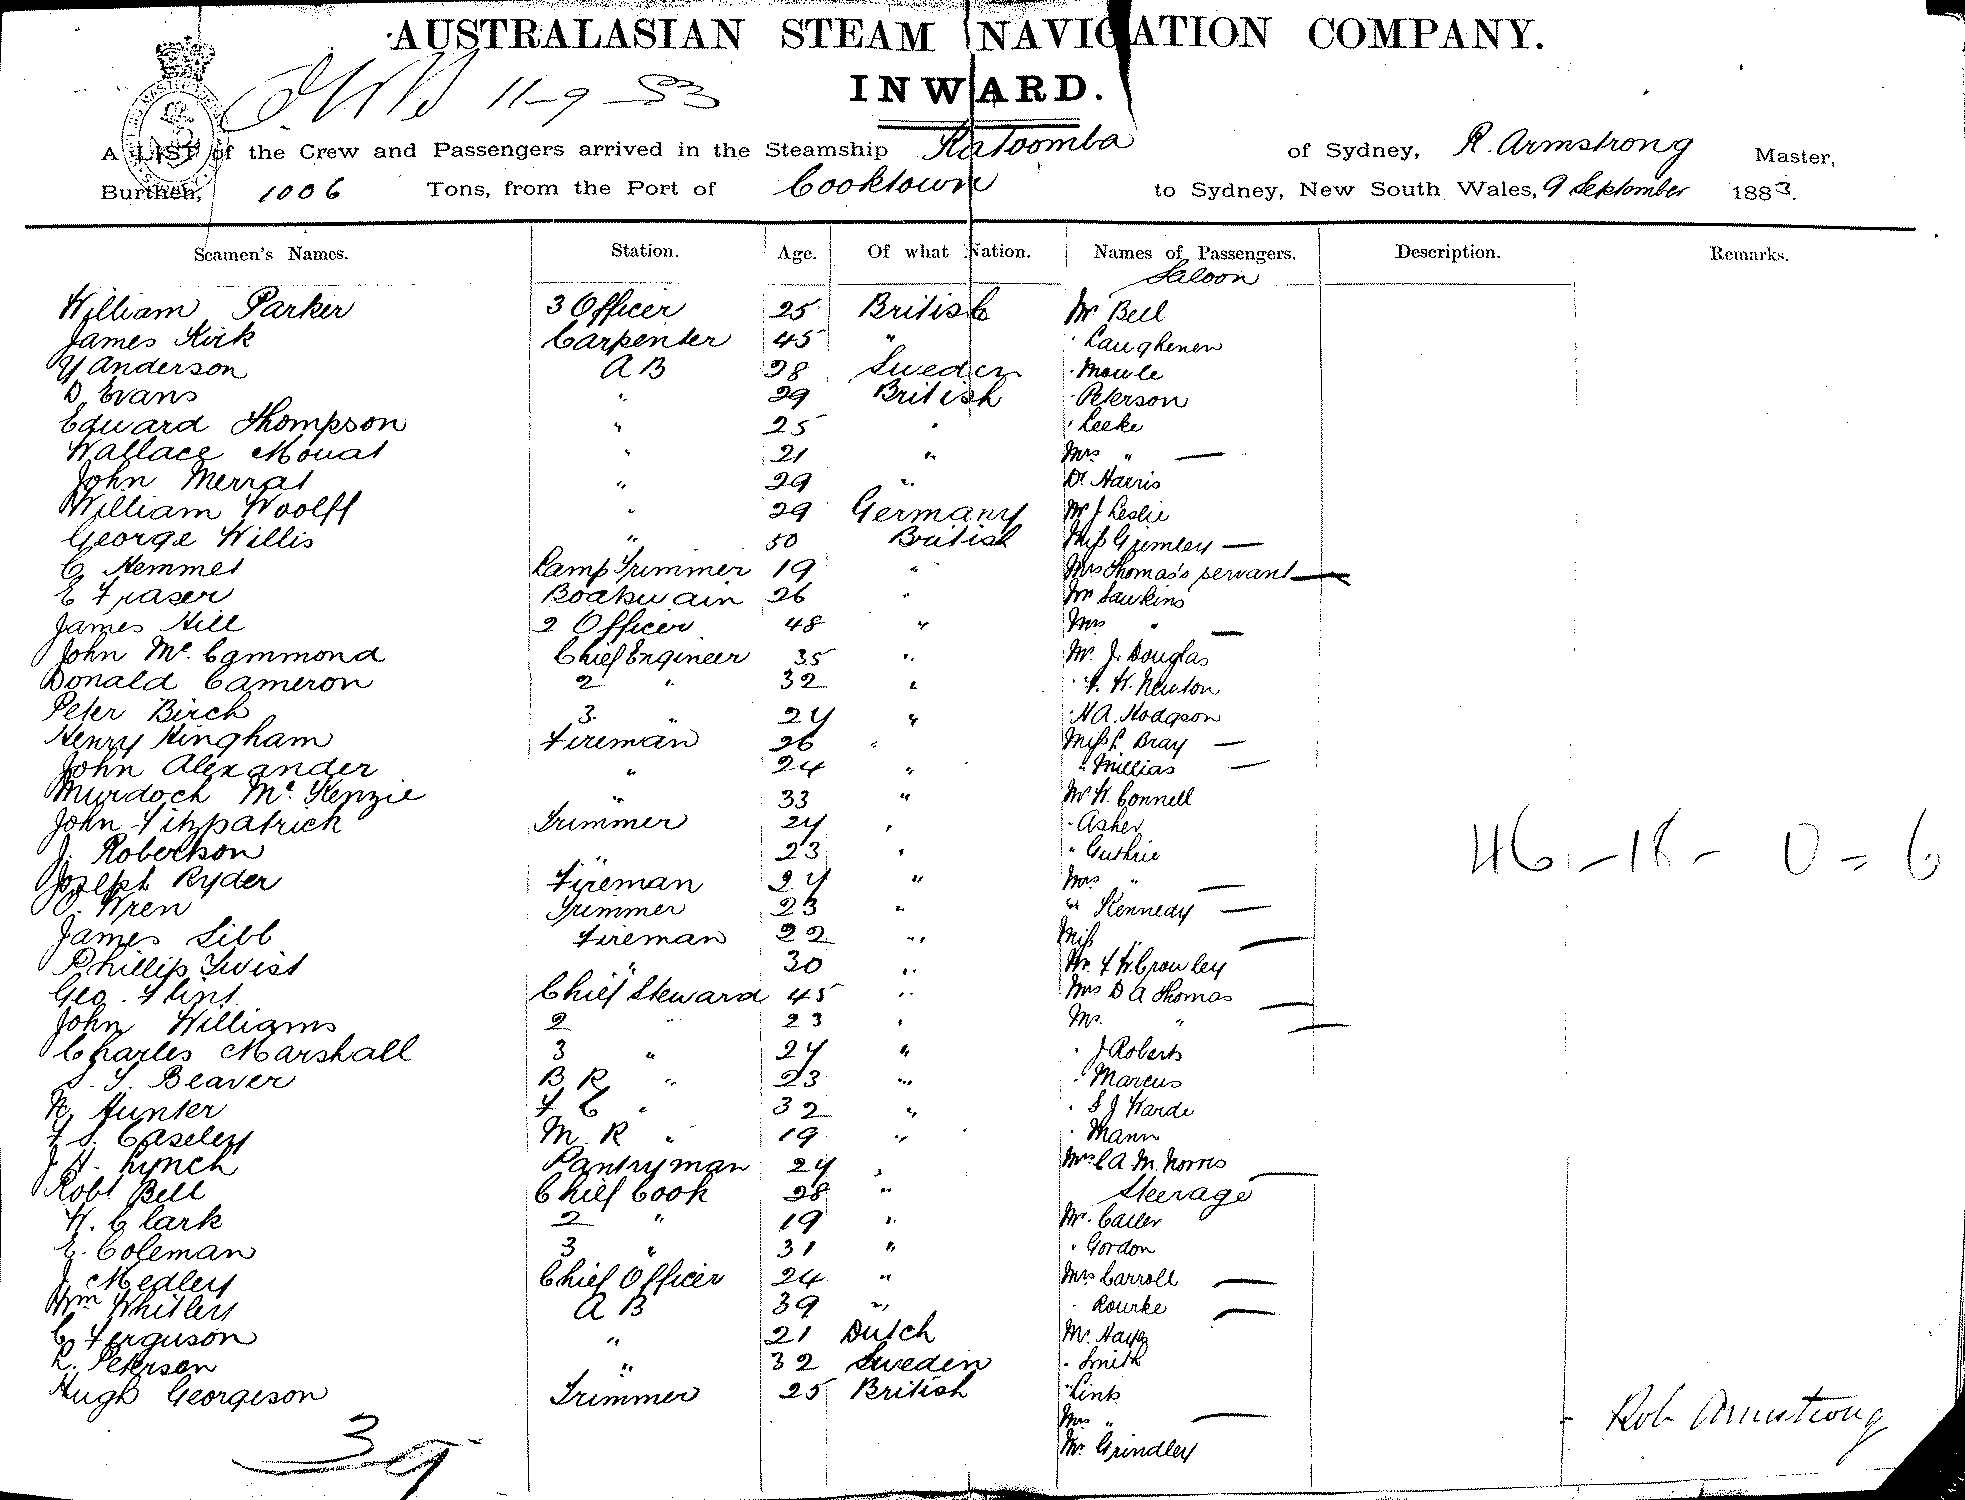 AUSTRALASIAN STEAM NAVIGATION COMPANY.
INWARD.
11-9-83
A LIST of the Crew and Passengers arrived in the Steamship Katoomba of Sydney, R. Armstrong Master,
Burthen, 1006 Tons, from the Port of Cooktown to Sydney, New South Wales, 9 September 1883.
Seamen's Names. Station. Age. Of what Nation. Names of Passengers. Description. Remarks.
Saloon
William Parker 3 Officer 25 British Mr Bell
James Kirk Carpenter 45 " "
Anderson A B 28 Sweden " Moule
D Evans " 29 British " Peterson
Edward Thompson " 25 " " Leeke
Wallace Mouat " 21 " Mrs " —
John Merrat " 29 " Dr Harris
William Woolff " 29 Germany Mr J Leslie
George Willis " 50 British Miss Grimley —
C Hemmet Lamp Trimmer 19 " Mrs Thomas's servant —
E Fraser Boatswain 26 " Mr Hawkins
James Hill 2 Officer 48 " Mrs " —
John Mc Cammond Chief Engineer 35 " Mr. J. Douglas
Donald Cameron 2 " 32 " " F. W. Newton
Peter Birch 3 " 24 " " H A. Hodgson
Henry Kingham Fireman 26 " Miss L Bray —
John Alexander " 24 " " Millias —
Murdoch Mc Kenzie " 33 " Mr W. Connell
John Fitzpatrick Trimmer 24 " " Asher
J. Robertson " 23 " " Guthrie
46-18-0=6
Joseph Ryder Fireman 24 " Mrs " —
C. Wren Trimmer 23 " " Kennedy —
James Sibb Fireman 22 " Miss " —
Phillip Twist " 30 " Mr. F W Crowley
Geo. Flint Chief Steward 45 " Mrs D A Thomas —
John Williams 2 " 23 " Mr. "
Charles Marshall 3 " 24 " " J Roberts
S. T. Beaver B R " 23 " " Marcus
N. Hunter F C " 32 " " S J Warde
F S. Caseley M R " 19 " " Mann
J H. Lynch Pantryman 24 " Mrs C A M. Norris —
Robt Bell Chief Cook 28 " Steerage
W. Clark 2 " 19 " Mr. Caller
E. Coleman 3 " 31 " " Gordon
J. Medley Chief Officer 24 " Mrs Carroll —
Wm Whitley A B 39 " " Rourke —
C Ferguson " 21 Dutch Mr. Hayes
R. Petersen " 32 Sweden " Smith
Hugh Georgeson Trimmer 25 British " Links
Mrs " —
Rob Armstrong
Mr Grindley
39